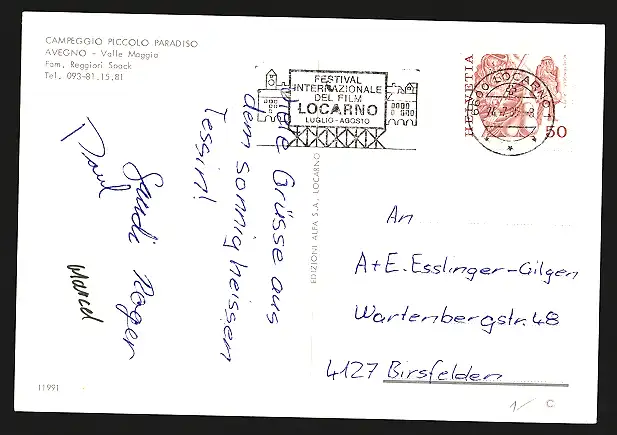 CAMPEGGIO PICCOLO PARADISO
AVEGNO - Valle Maggia
Fam. Reggiori Snack
Tel. 093-81.15.81
FESTIVAL
INTERNAZIONALE
DEL FILM
LOCARNO
LUGLIO-AGOSTO
HELVETIA
6600 LOCARNO 1
50
Grüsse aus
dem sonnigheissem
Tessin!
Sandi Roger
Paul
Marcel
EDIZIONI ALFA S.A., LOCARNO
An
A+E. Esslinger-Gilgen
Wartenbergstr. 48
4127 Birsfelden
11991
1/ C